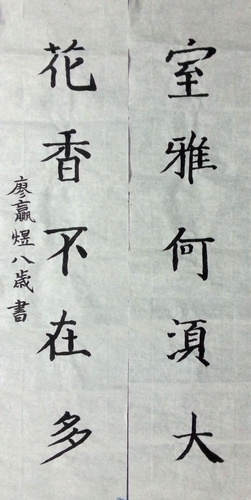 室雅何須大
花香不在多
廖贏煜八歲書